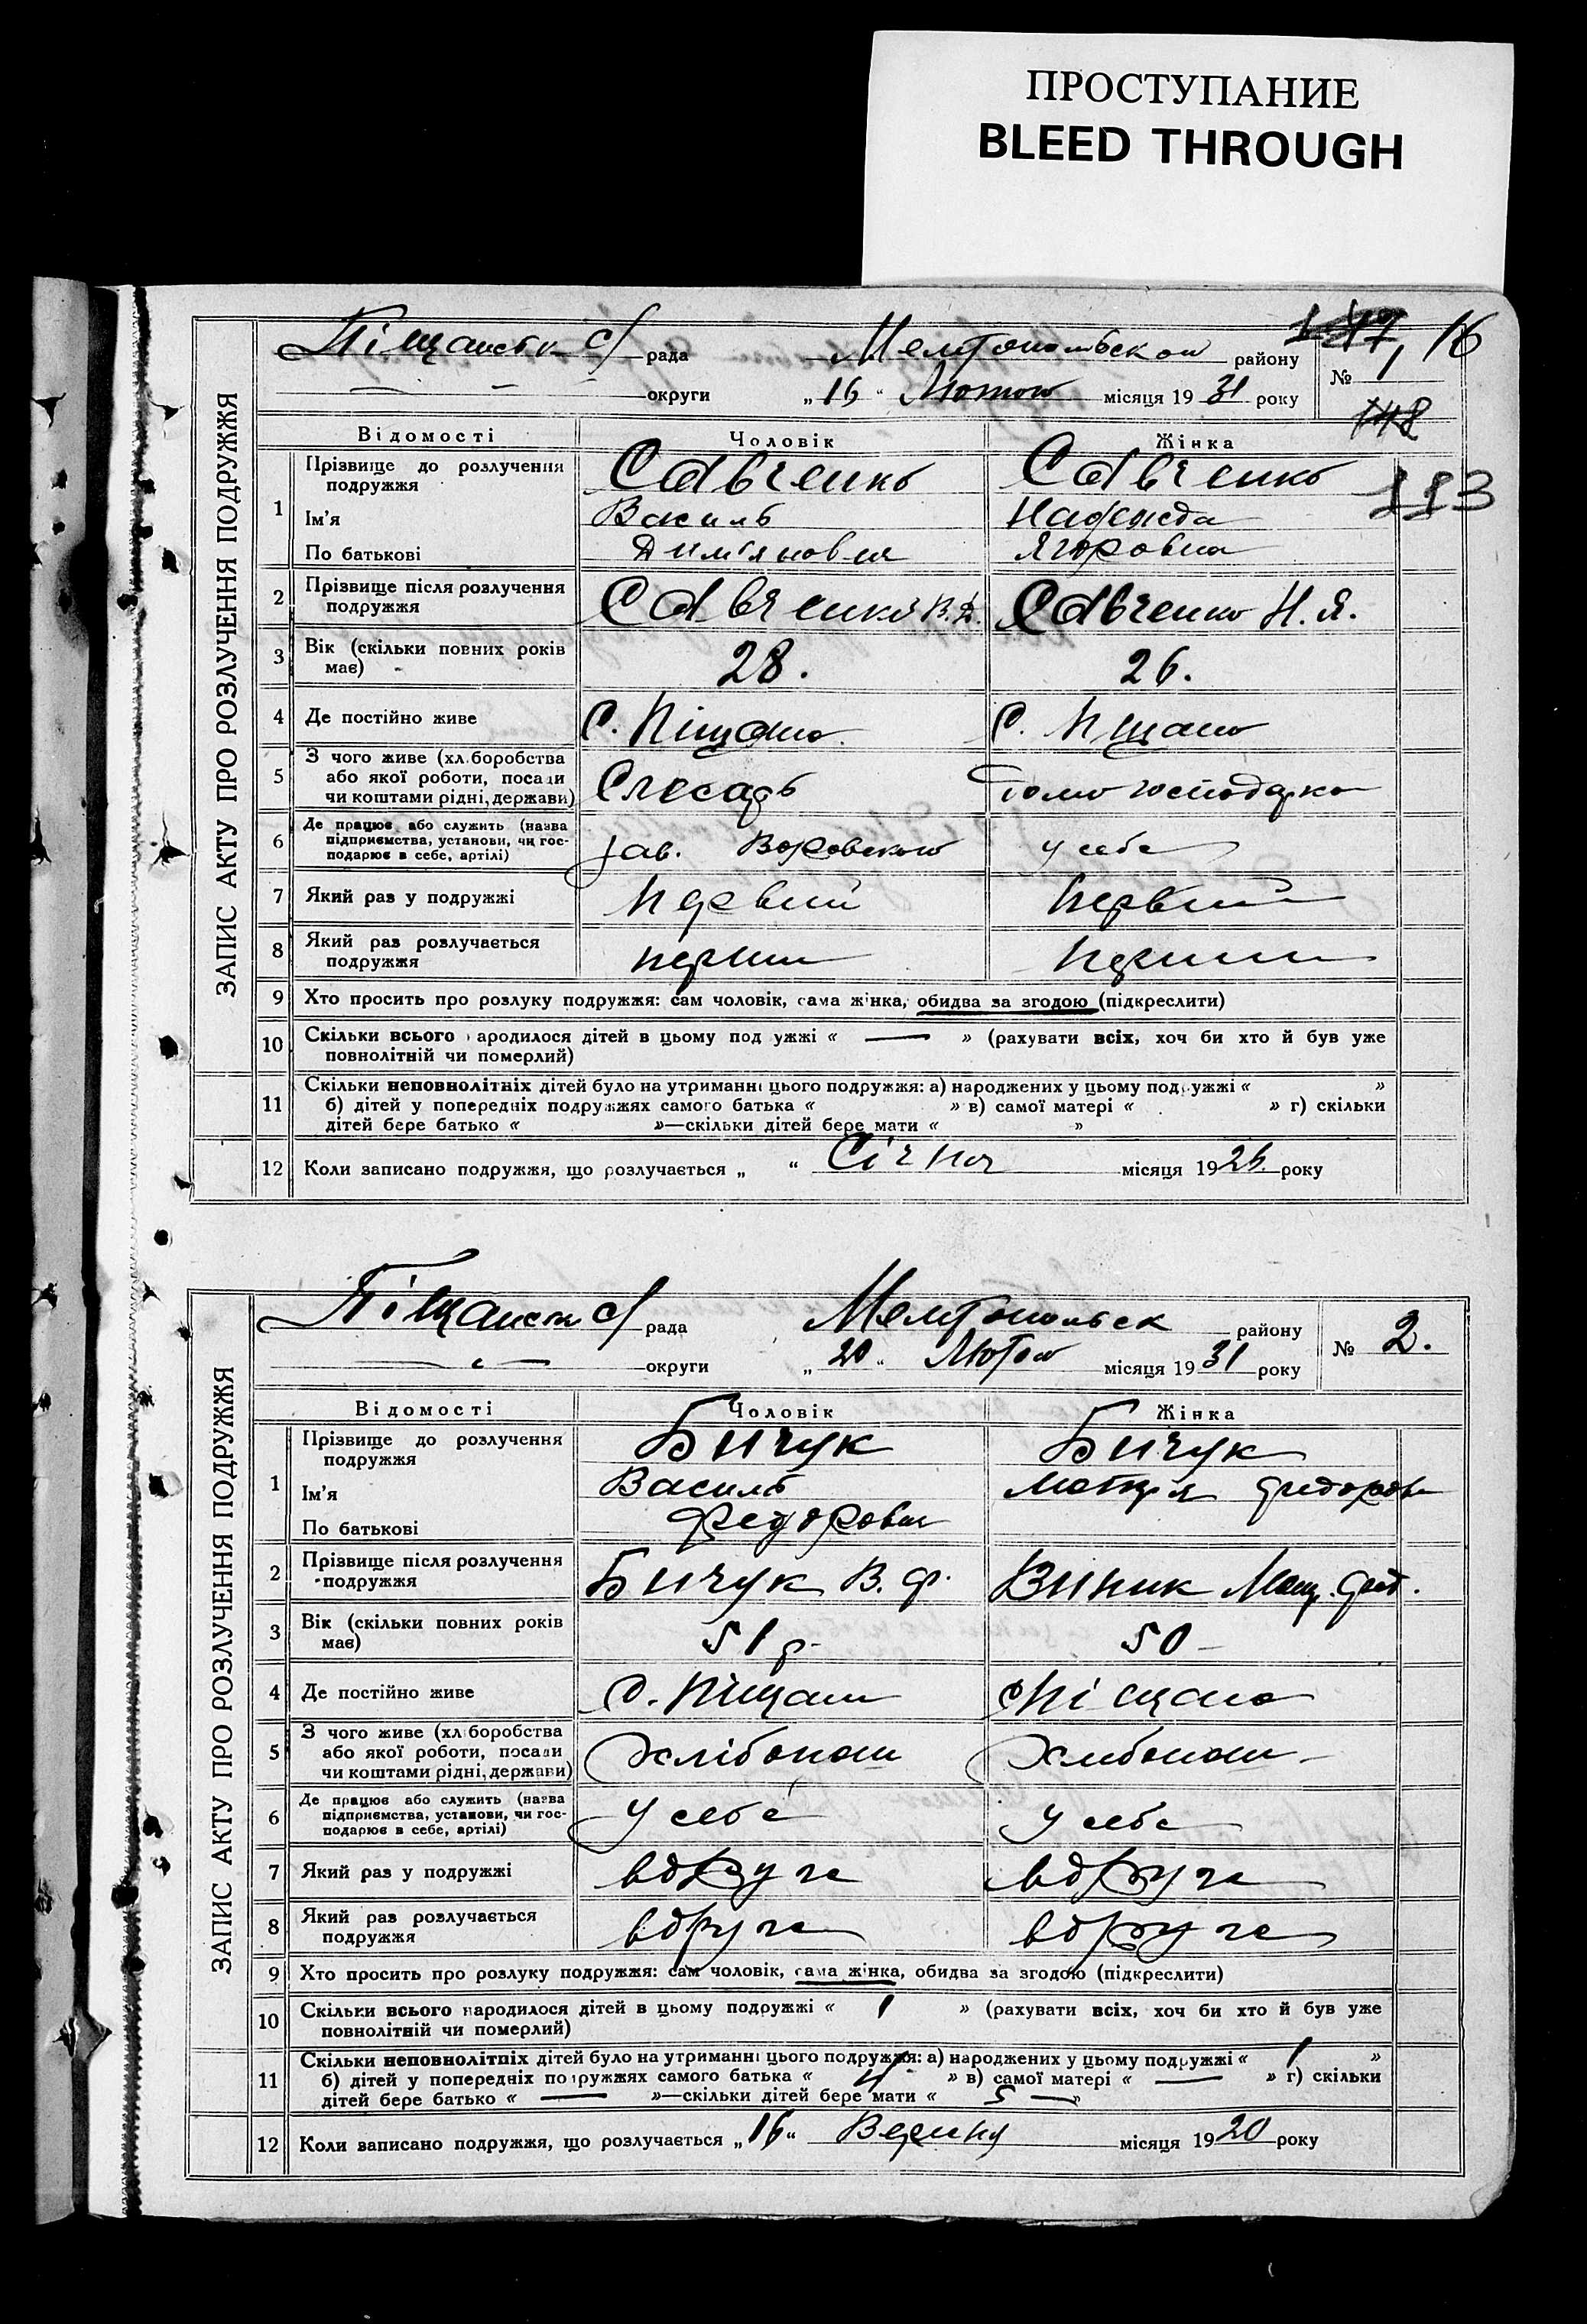 ПРОСТУПАНИЕ
BLEED THROUGH
ЗАПИС АКТУ ПРО РОЗЛУЧЕННЯ ПОДРУЖЖЯ
рада району 16
округи „16“ місяця 1931 року № 1
148
Відомості Чоловік Жінка
1 Прізвище до розлучення подружжя Савченко Савченко 113
Ім'я Василь Надежда
По батькові Ягоровна
2 Прізвище після розлучення подружжя Савченко В. Д. Савченко Н. Я.
3 Вік (скільки повних років має) 28. 26.
4 Де постійно живе С. Піщано С. Пщано
5 З чого живе (хліборобства або якої роботи, посади чи коштами рідні, держави) Слесарь
6 Де працює або служить (назва підприємства, установи, чи господарює в себе, артілі) зав. Воровского у себе
7 Який раз у подружжі Первий Первий
8 Який раз розлучається подружжя перши перши
9 Хто просить про розлуку подружжя: сам чоловік, сама жінка, обидва за згодою (підкреслити)
10 Скільки всього народилося дітей в цьому подружжі « — » (рахувати всіх, хоч би хто й був уже
повнолітній чи померлий)
11 Скільки неповнолітніх дітей було на утриманні цього подружжя: а) народжених у цьому подружжі « »
б) дітей у попередніх подружжях самого батька « » в) самої матері « » г) скільки
дітей бере батько « »—скільки дітей бере мати « »
12 Коли записано подружжя, що розлучається „ “ Січня місяця 1926 року
ЗАПИС АКТУ ПРО РОЗЛУЧЕННЯ ПОДРУЖЖЯ
рада Мелітопольск району
округи „20“ місяця 1931 року № 2.
Відомості Чоловік Жінка
1 Прізвище до розлучення подружжя Бичук Бичук
Ім'я Василь
По батькові Федорович
2 Прізвище після розлучення подружжя Бичук В. Ф. Виник
3 Вік (скільки повних років має) 51 р. 50
4 Де постійно живе с. Піщани с Піщано
5 З чого живе (хліборобства або якої роботи, посади чи коштами рідні, держави) Хлібопаш Хлибопаш
6 Де працює або служить (назва підприємства, установи, чи господарює в себе, артілі) У себе У себе
7 Який раз у подружжі вдруге вдруге
8 Який раз розлучається подружжя вдруге вдруге
9 Хто просить про розлуку подружжя: сам чоловік, сама жінка, обидва за згодою (підкреслити)
10 Скільки всього народилося дітей в цьому подружжі « 1 » (рахувати всіх, хоч би хто й був уже
повнолітній чи померлий)
11 Скільки неповнолітніх дітей було на утриманні цього подружжя: а) народжених у цьому подружжі « 1 »
б) дітей у попередніх подружжях самого батька « 4 » в) самої матері « — » г) скільки
дітей бере батько « — »—скільки дітей бере мати « 5 — »
12 Коли записано подружжя, що розлучається „16“ місяця 1920 року